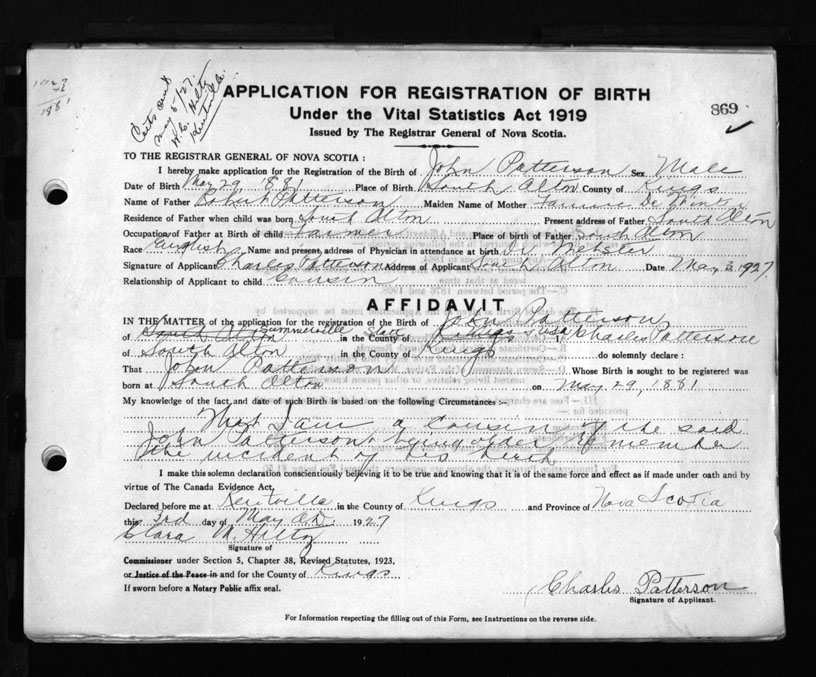 1927
1881
Certs sent
May 5/27.
W.C. Hiltz
Kentville.
APPLICATION FOR REGISTRATION OF BIRTH
869
Under the Vital Statistics Act 1919
Issued by The Registrar General of Nova Scotia.
TO THE REGISTRAR GENERAL OF NOVA SCOTIA :
I hereby make application for the Registration of the Birth of John Patterson Sex Male
Date of Birth May 29, 1881 Place of Birth South Alton County of Kings
Name of Father Robert Patterson Maiden Name of Mother Fannie
Residence of Father when child was born South Alton Present address of Father South Alton
Occupation of Father at Birth of child Farmer Place of birth of Father South Alton
Race English Name and present address of Physician in attendance at birth Dr. Webster
Signature of Applicant Charles Patterson Address of Applicant South Alton Date May 3, 1927
Relationship of Applicant to child Cousin
AFFIDAVIT
IN THE MATTER of the application for the registration of the Birth of John Patterson
of South Alton Summerville State in the County of Kings USA I, Charles Patterson
of South Alton in the County of Kings do solemnly declare :
That John Patterson Whose Birth is sought to be registered was
born at South Alton on May 29, 1881
My knowledge of the fact, and date of such Birth is based on the following Circumstances :—
That I am a cousin of the said
John Patterson & being older remember
the incident of his birth
I make this solemn declaration conscientiously believing it to be true and knowing that it is of the same force and effect as if made under oath and by
virtue of The Canada Evidence Act,
Declared before me at Kentville in the County of Kings and Province of Nova Scotia
this 3rd day of May A.D. 1927
Clara M. Hiltz
Signature of
Commissioner under Section 5, Chapter 38, Revised Statutes, 1923,
or Justice of the Peace in and for the County of Kings
If sworn before a Notary Public affix seal.
Charles Patterson
Signature of Applicant.
For Information respecting the filling out of this Form, see Instructions on the reverse side.